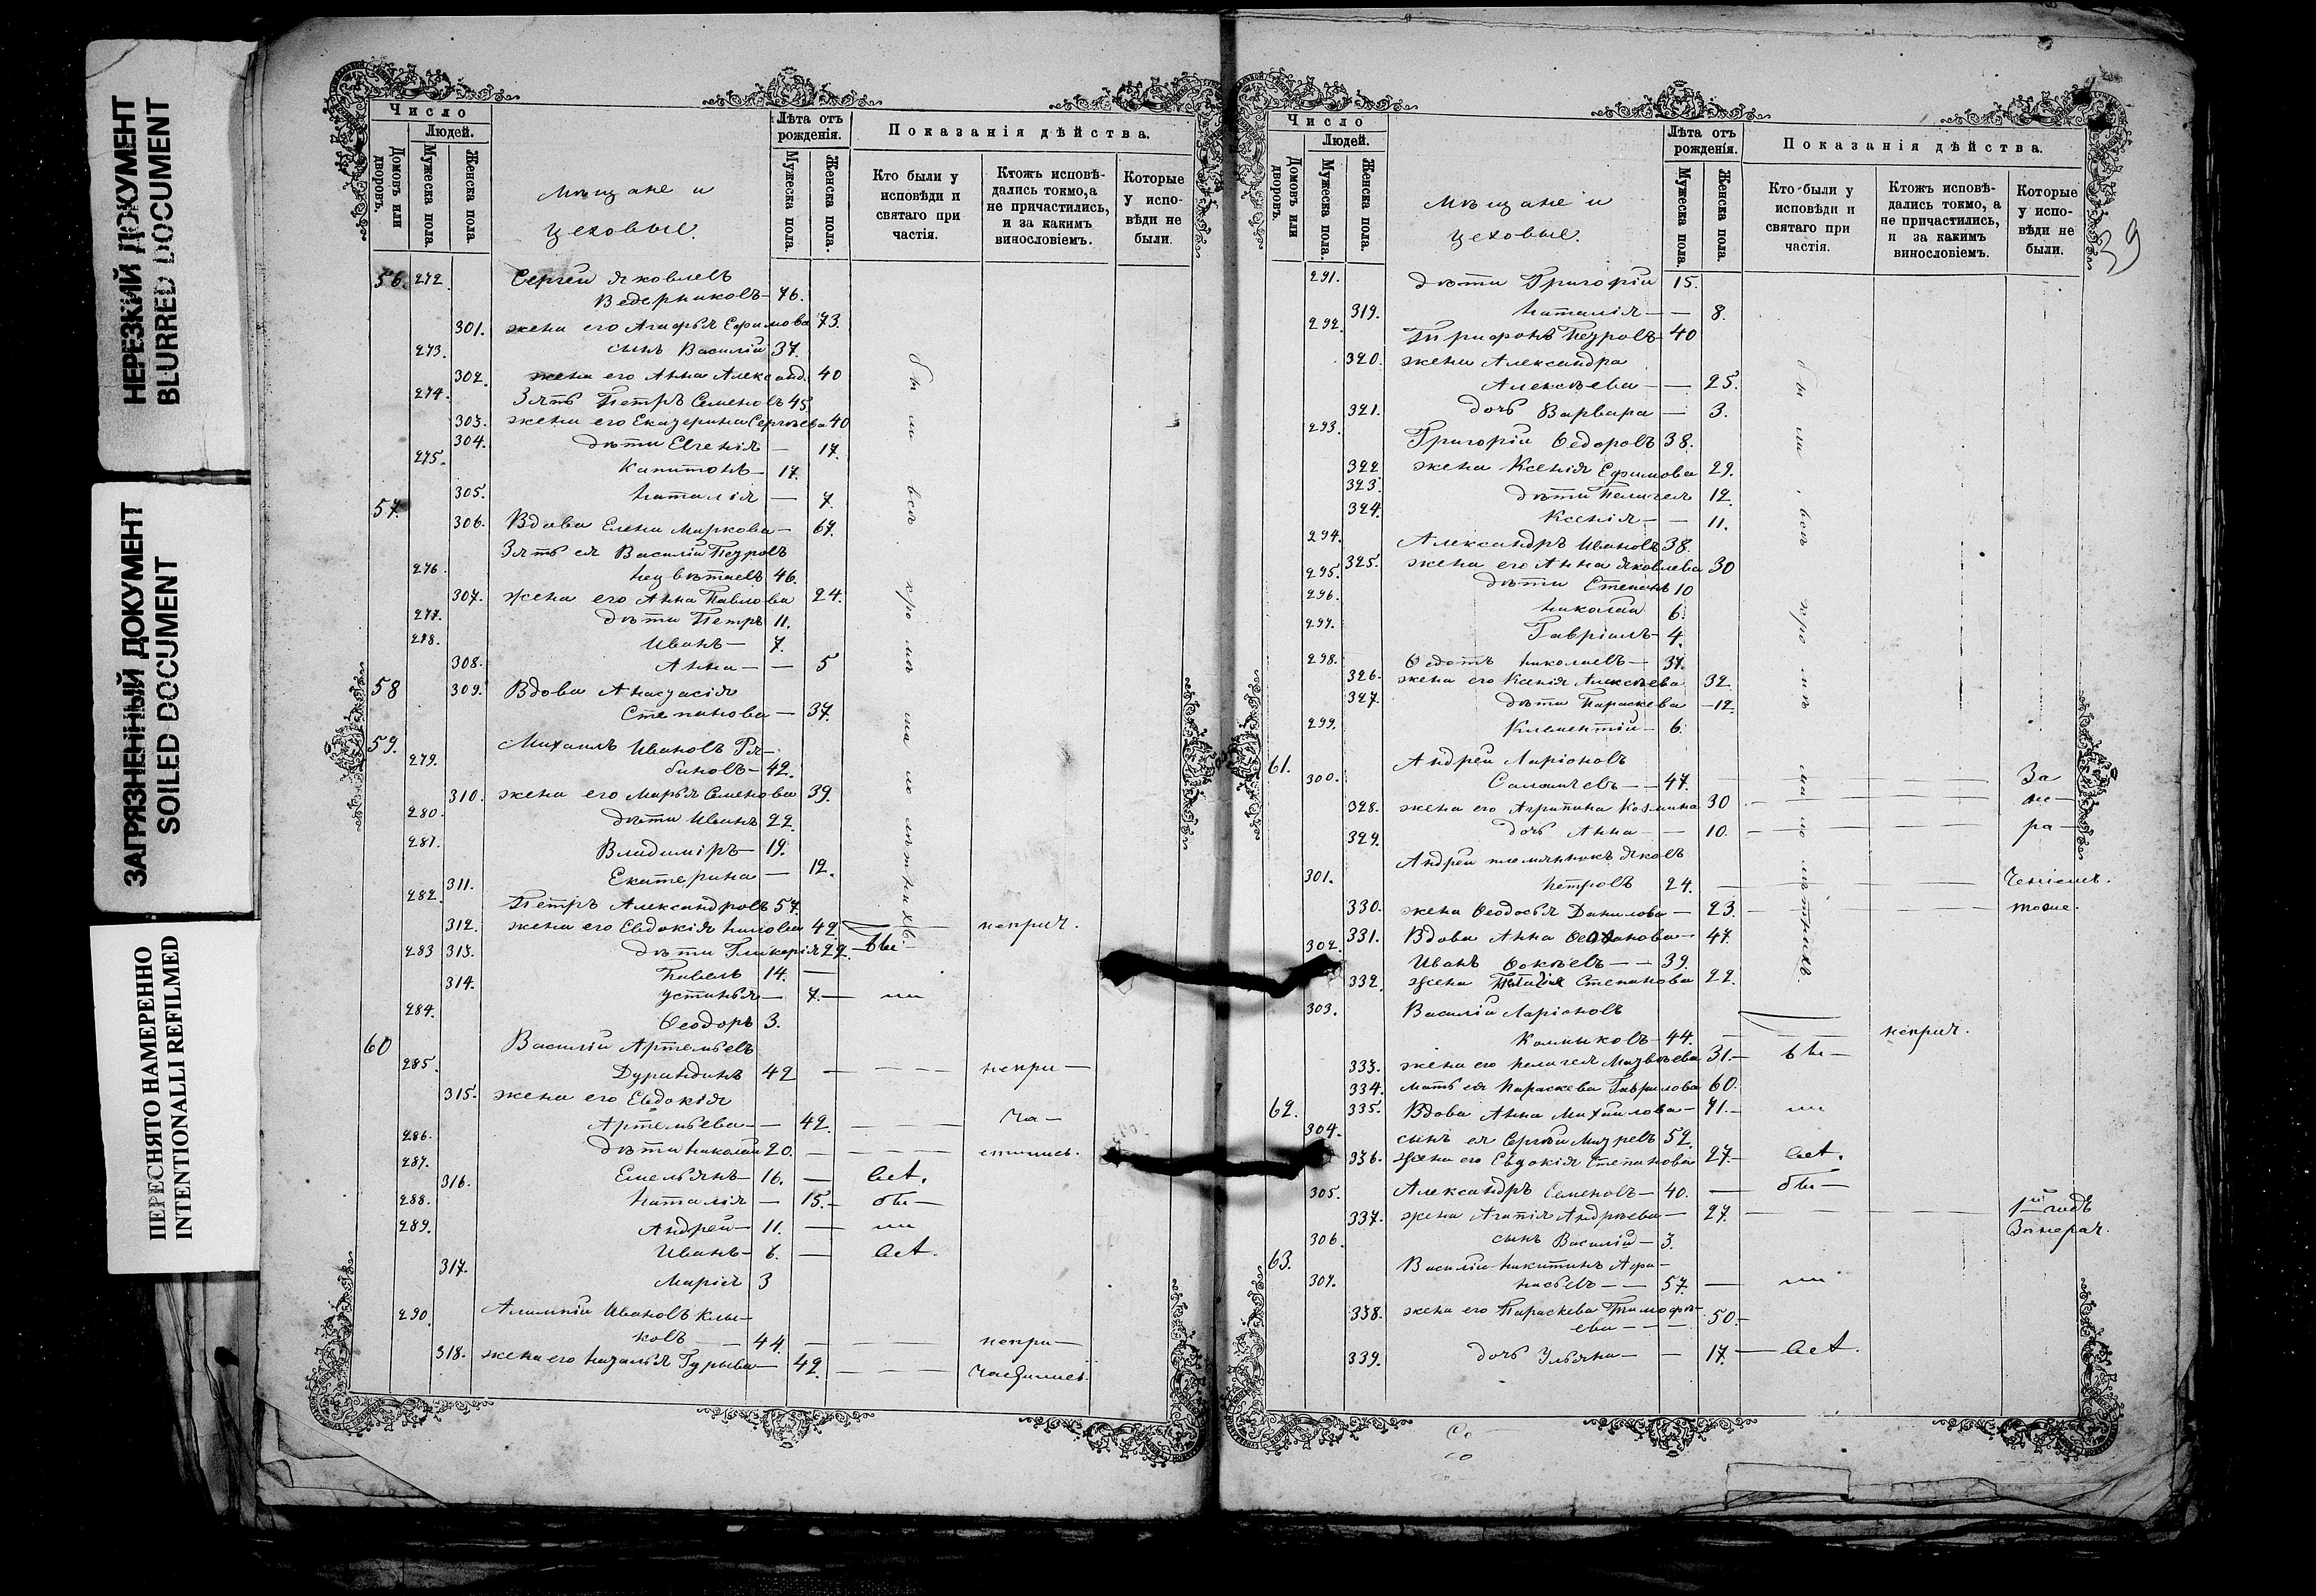 НЕРЕЗКИЙ ДОКУМЕНТ
BLURRED DOCUMENT
ЗАГРЯЗНЕННЫЙ ДОКУМЕНТ
SOILED DOCUMENT
ПЕРЕСНЯТО НАМЕРЕННО
INTENTIONALLI REFILMED
Число
Людей.
Домовъ или дворовъ.
Мужеска пола.
Женска пола.
Мѣщане и
цеховые.
Лѣта отъ рожденія.
Мужеска пола.
Женска пола.
Показанія дѣйства.
Кто были у исповѣди и святаго причастія.
Ктожъ исповѣдались токмо, а не причастились, и за какимъ винословіемъ.
Которые у исповѣди не были.
56. 272. Сергей Яковлевъ
Ведерниковъ 76.
301. жена его Агафья Ефимова 73.
273. сынъ Василій 37.
302. жена его Анна Александ. 40
274. Зять Петръ Семеновъ 45
303. жена его Екатерина Сергѣева 40
304. дѣти Евгенія 17.
275. Капитонъ 17.
305. Наталія 7.
57. 306. Вдова Елена Маркова 67.
Зять ея Василій Петровъ
276. 46.
307. жена его Анна Павлова 24.
277. дѣти Петръ 11.
278. Иванъ 7.
308. Анна 5
58 309. Вдова Анастасія
Степанова 37.
59. Михаилъ Ивановъ Ря-
279. биновъ 42.
310. жена его Марья Семенова 39.
280. дѣти Иванъ 22.
281. Владиміръ 19.
311. Екатерина 12.
282. Петръ Александровъ 57.
312. жена его Евдокія 42 неприч.
283 313. дѣти Гликерія 22. бы
Павелъ 14.
314. Устинья 7. ли
284. Ѳеодоръ 3.
60 Василій Артемьевъ
285. Дурандинъ 42 непри-
315. жена его Евдокія
Артемьева 42. ча-
286. дѣти Николай 20. стились.
287. Емельянъ 16. всѣ.
316. Наталія 15. бы
288. Андрей 11. ли
289. Иванъ 6. всѣ.
317. Марія 3
290. Алимпій Ивановъ Клы-
ковъ 44. непри-
318. жена его Наталья Гурьева 42. частились.
были всѣ кромѣ малолѣтнихъ.
39
Число
Людей.
Домовъ или дворовъ.
Мужеска пола.
Женска пола.
Мѣщане и
цеховые.
Лѣта отъ рожденія.
Мужеска пола.
Женска пола.
Показанія дѣйства.
Кто были у исповѣди и святаго причастія.
Ктожъ исповѣдались токмо, а не причастились, и за какимъ винословіемъ.
Которые у исповѣди не были.
291. дѣти Григорій 15.
319. Наталія 8.
292. Трифонъ Петровъ 40
320. жена Александра
Алексѣева 25.
321. дочь Варвара 3.
293. Григорій Ѳедоровъ 38.
322 жена Ксенія Ефимова 29.
323. дѣти Пелагея 12.
324. Ксенія 11.
294. Александръ Ивановъ 38.
325. жена его Анна Яковлева 30
295. дѣти Степанъ 10
296. Николай 6.
297. Гавріилъ 4.
298. Ѳедотъ Николаевъ 37.
326. жена его Ксенія Алексѣева 32.
327. дѣти Параскева 12.
299. Климентій 6.
61. Андрей Ларіоновъ
300. 47. За
328. жена его Агрипина Козмина 30 не-
329. дочь Анна 10. ра-
Андрей племянникъ Яковъ
301. Петровъ 24. ченіемъ.
330. жена Ѳеодосья Данилова 23. тоже.
331. Вдова Анна 47.
302. Иванъ Ѳокѣевъ 39.
332. жена Степанова 22.
303. Василій Ларіоновъ
Калмыковъ 44. неприч.
333. жена его Пелагея Матвѣева 31. бы
334. мать ея Параскева Гаврилова 60.
62. 335. Вдова Анна Михайлова 71. ли
304. сынъ ея Сергѣй 52.
336. жена его Евдокія Степанова 27. всѣ.
305. Александръ Семеновъ 40. бы
337. жена Агапія Андрѣева 27. 1й годъ
306. сынъ Василій 3. Занерач.
63. Василій Никитинъ Афа-
307. насьевъ 57. ли
338. жена его Параскева Тимофѣ-
ева 50.
339. дочь Ульяна 17. всѣ.
были всѣ кромѣ малолѣтнихъ.